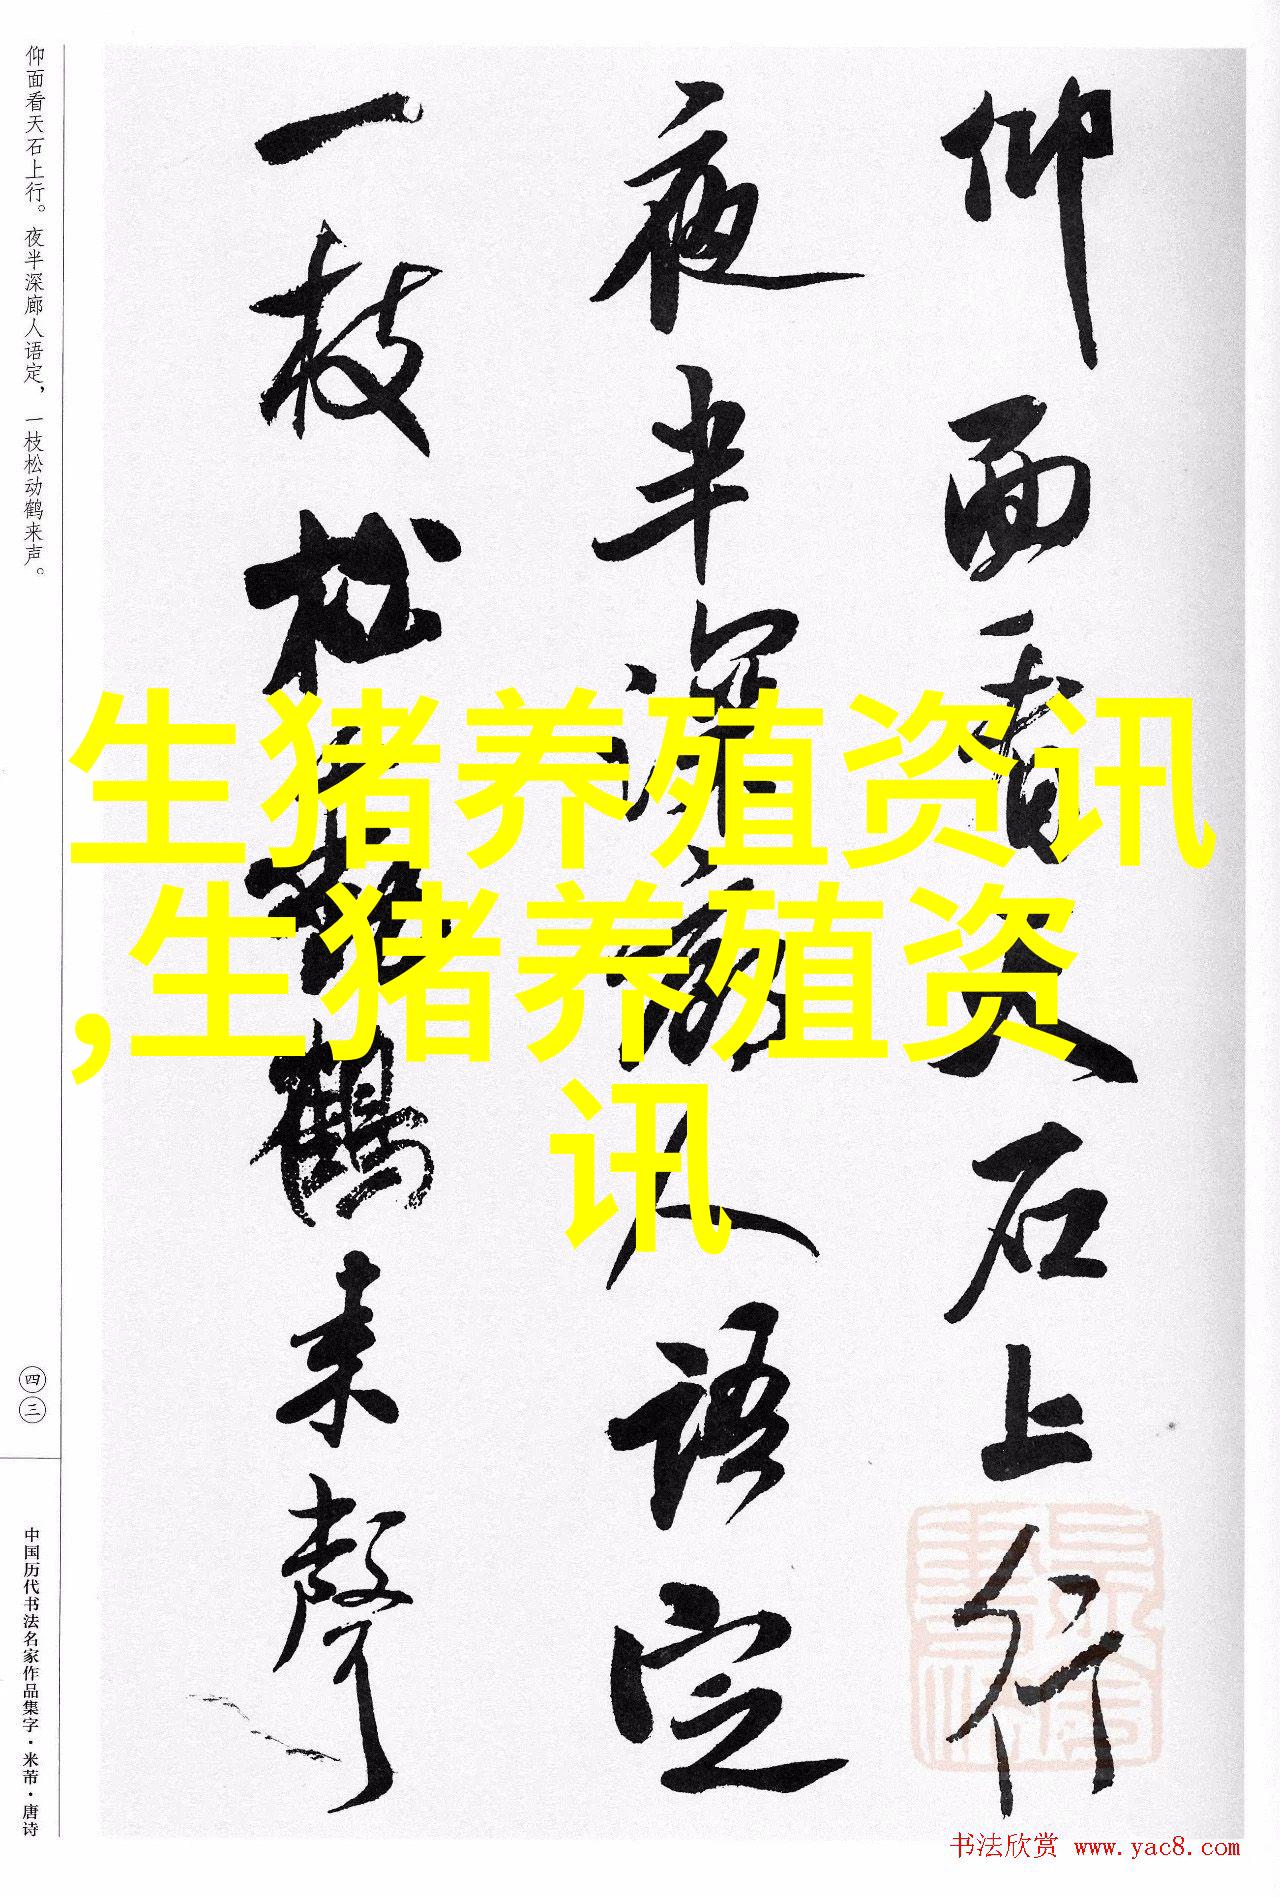 仰面看天石上行。夜半深廊人语定，一枝松动鹤来声。
仰面看天石上行
夜半深廊人語定
一枝松動鶴来聲
生猪养殖资讯
,生猪养殖资
讯
四三
中国历代书法名家作品集字·米芾·唐诗
书法欣赏 www.yac8.com